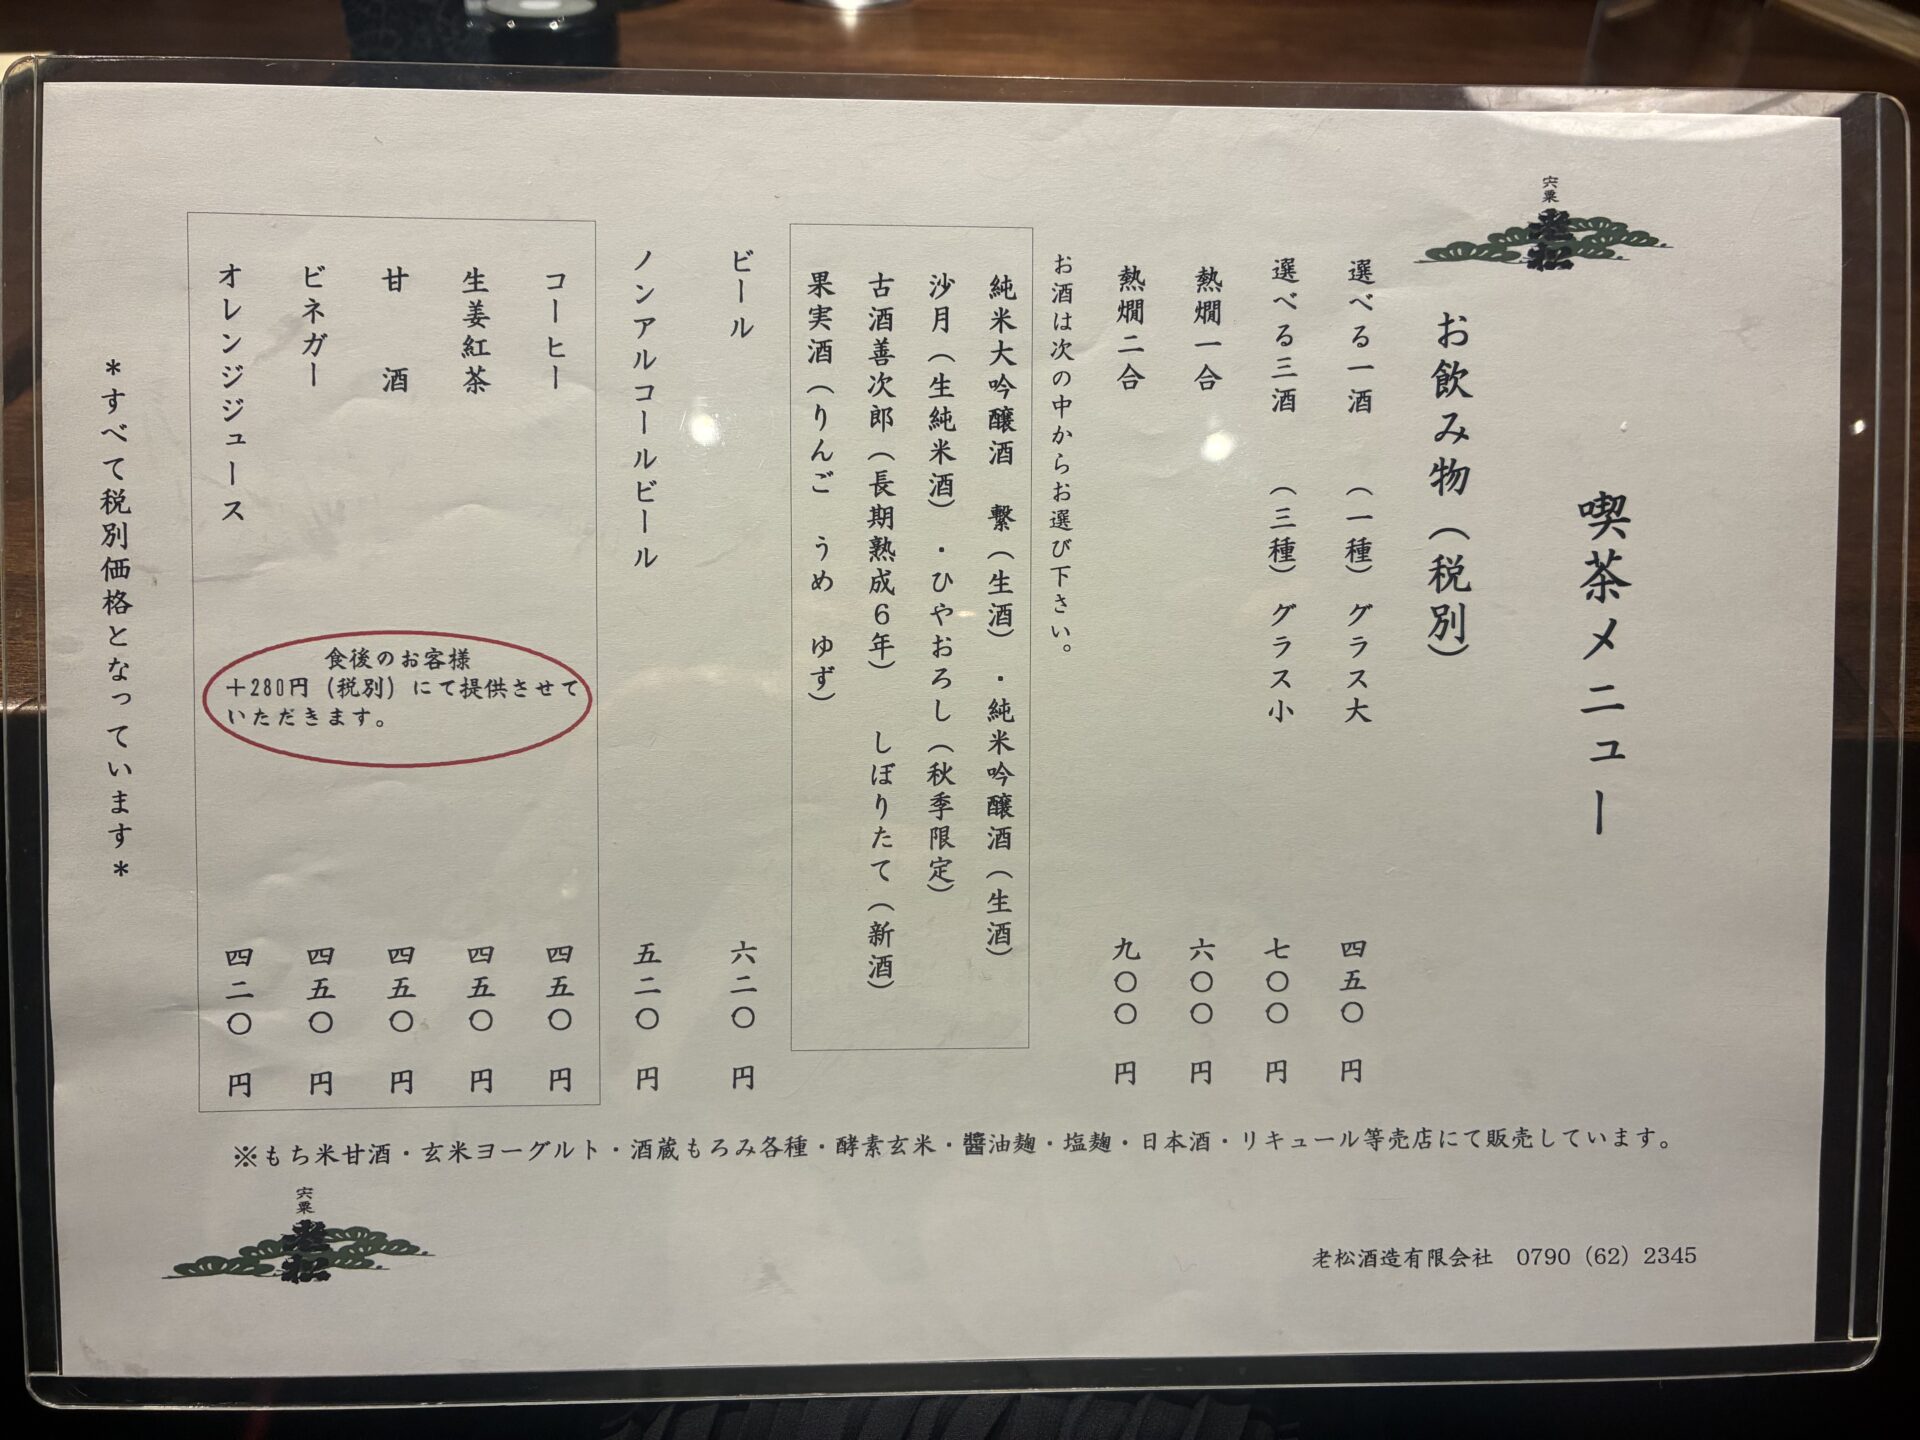 宍粟
老松
喫茶メニュー
お飲み物（税別）
選べる一酒　（一種）グラス大　四五〇円
選べる三酒　（三種）グラス小　七〇〇円
熱燗一合　六〇〇円
熱燗二合　九〇〇円
お酒は次の中からお選び下さい。
純米大吟醸酒　繋（生酒）・純米吟醸酒（生酒）
沙月（生純米酒）・ひやおろし（秋季限定）
古酒善次郎（長期熟成６年）　しぼりたて（新酒）
果実酒（りんご　うめ　ゆず）
ビール　六二〇円
ノンアルコールビール　五二〇円
コーヒー　四五〇円
生姜紅茶　四五〇円
甘　酒　四五〇円
ビネガー　四五〇円
オレンジジュース　四二〇円
食後のお客様
＋280円（税別）にて提供させて
いただきます。
＊すべて税別価格となっています＊
※もち米甘酒・玄米ヨーグルト・酒蔵もろみ各種・酵素玄米・醬油麹・塩麹・日本酒・リキュール等売店にて販売しています。
宍粟
老松
老松酒造有限会社　0790（62）2345